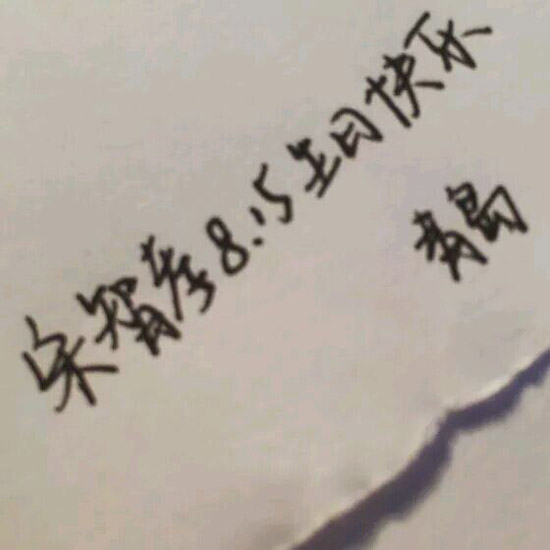 宋智孝8.15生日快乐
青岛